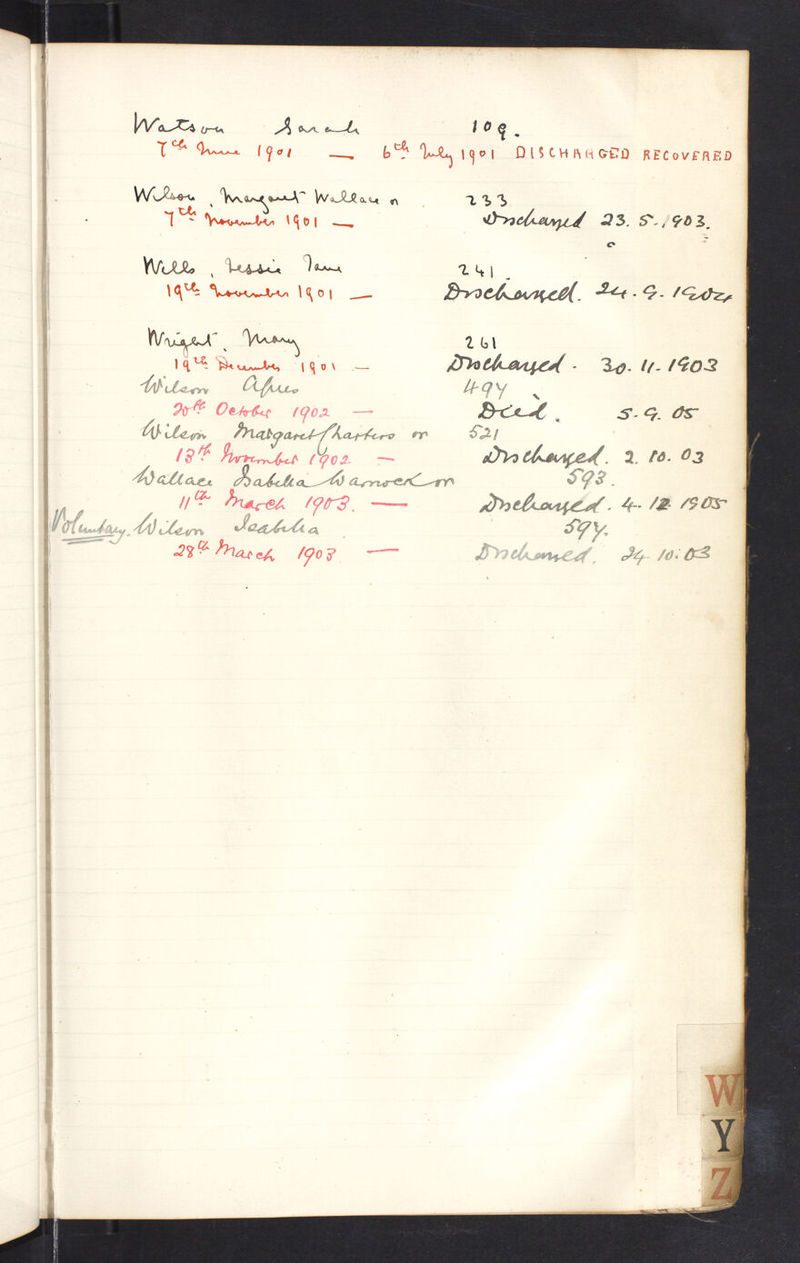 Watson Sarah 109.
7th June 1901 — 6th July 1901 DISCHARGED RECOVERED
Wilson, Margaret Wallace or 233
7th November 1901 — Discharged 23. 5. 1903.
Wells, Jessie Jane 241.
19th November 1901 — Discharged. 24. 9. 1904
Wright, Mary 261
19th December 1901 — Discharged - 30. 11. 1903
Wilson Agnes 494
20th October 1902 — Died. 5. 9. 05
Wilson Margaret Charters or 521
13th November 1902 — Discharged. 2. 10. 03
Wallace Isabella Warnock or 593.
11th March 1903. — Discharged. 4. 12 1905
Voluntary. Wilson Isabella 594.
28th March 1903 — Discharged. 24 10. 03
W
Y
Z